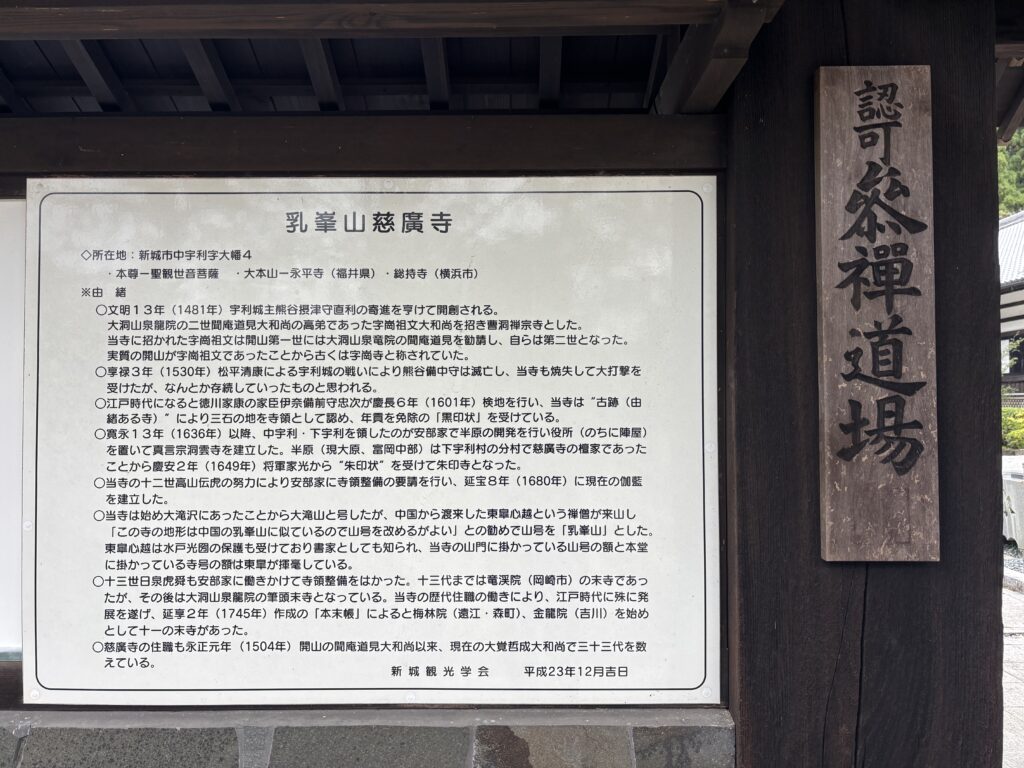 乳峯山慈廣寺
◇所在地：新城市中宇利字大幡４
・本尊ー聖観世音菩薩　・大本山ー永平寺（福井県）・総持寺（横浜市）
※由　緒
○文明１３年（1481年）宇利城主熊谷摂津守直利の寄進を享けて開創される。
大洞山泉龍院の二世聞庵道見大和尚の高弟であった字崗祖文大和尚を招き曹洞禅宗寺とした。
当寺に招かれた字崗祖文は開山第一世には大洞山泉竜院の聞庵道見を勧請し、自らは第二世となった。
実質の開山が字崗祖文であったことから古くは字崗寺と称されていた。
○享禄３年（1530年）松平清康による宇利城の戦いにより熊谷備中守は滅亡し、当寺も焼失して大打撃を
受けたが、なんとか存続していったものと思われる。
○江戸時代になると徳川家康の家臣伊奈備前守忠次が慶長６年（1601年）検地を行い、当寺は“古跡（由
緒ある寺）”により三石の地を寺領として認め、年貢を免除の「黒印状」を受けている。
○寛永１３年（1636年）以降、中宇利・下宇利を領したのが安部家で半原の開発を行い役所（のちに陣屋）
を置いて真言宗洞雲寺を建立した。半原（現大原、富岡中部）は下宇利村の分村で慈廣寺の檀家であった
ことから慶安２年（1649年）将軍家光から“朱印状”を受けて朱印寺となった。
○当寺の十二世高山伝虎の努力により安部家に寺領整備の要請を行い、延宝８年（1680年）に現在の伽藍
を建立した。
○当寺は始め大滝沢にあったことから大滝山と号したが、中国から渡来した東皐心越という禅僧が来山し
「この寺の地形は中国の乳峯山に似ているので山号を改めるがよい」との勧めで山号を「乳峯山」とした。
東皐心越は水戸光圀の保護も受けており書家としても知られ、当寺の山門に掛かっている山号の額と本堂
に掛かっている寺号の額は東皐が揮毫している。
○十三世日泉虎舜も安部家に働きかけて寺領整備をはかった。十三代までは竜渓院（岡崎市）の末寺であっ
たが、その後は大洞山泉龍院の筆頭末寺となっている。当寺の歴代住職の働きにより、江戸時代に殊に発
展を遂げ、延享２年（1745年）作成の「本末帳」によると梅林院（遠江・森町）、金龍院（吉川）を始め
として十一の末寺があった。
○慈廣寺の住職も永正元年（1504年）開山の聞庵道見大和尚以来、現在の大覚哲成大和尚で三十三代を数
えている。
新城観光学会　　平成23年12月吉日
認可叅禪道場